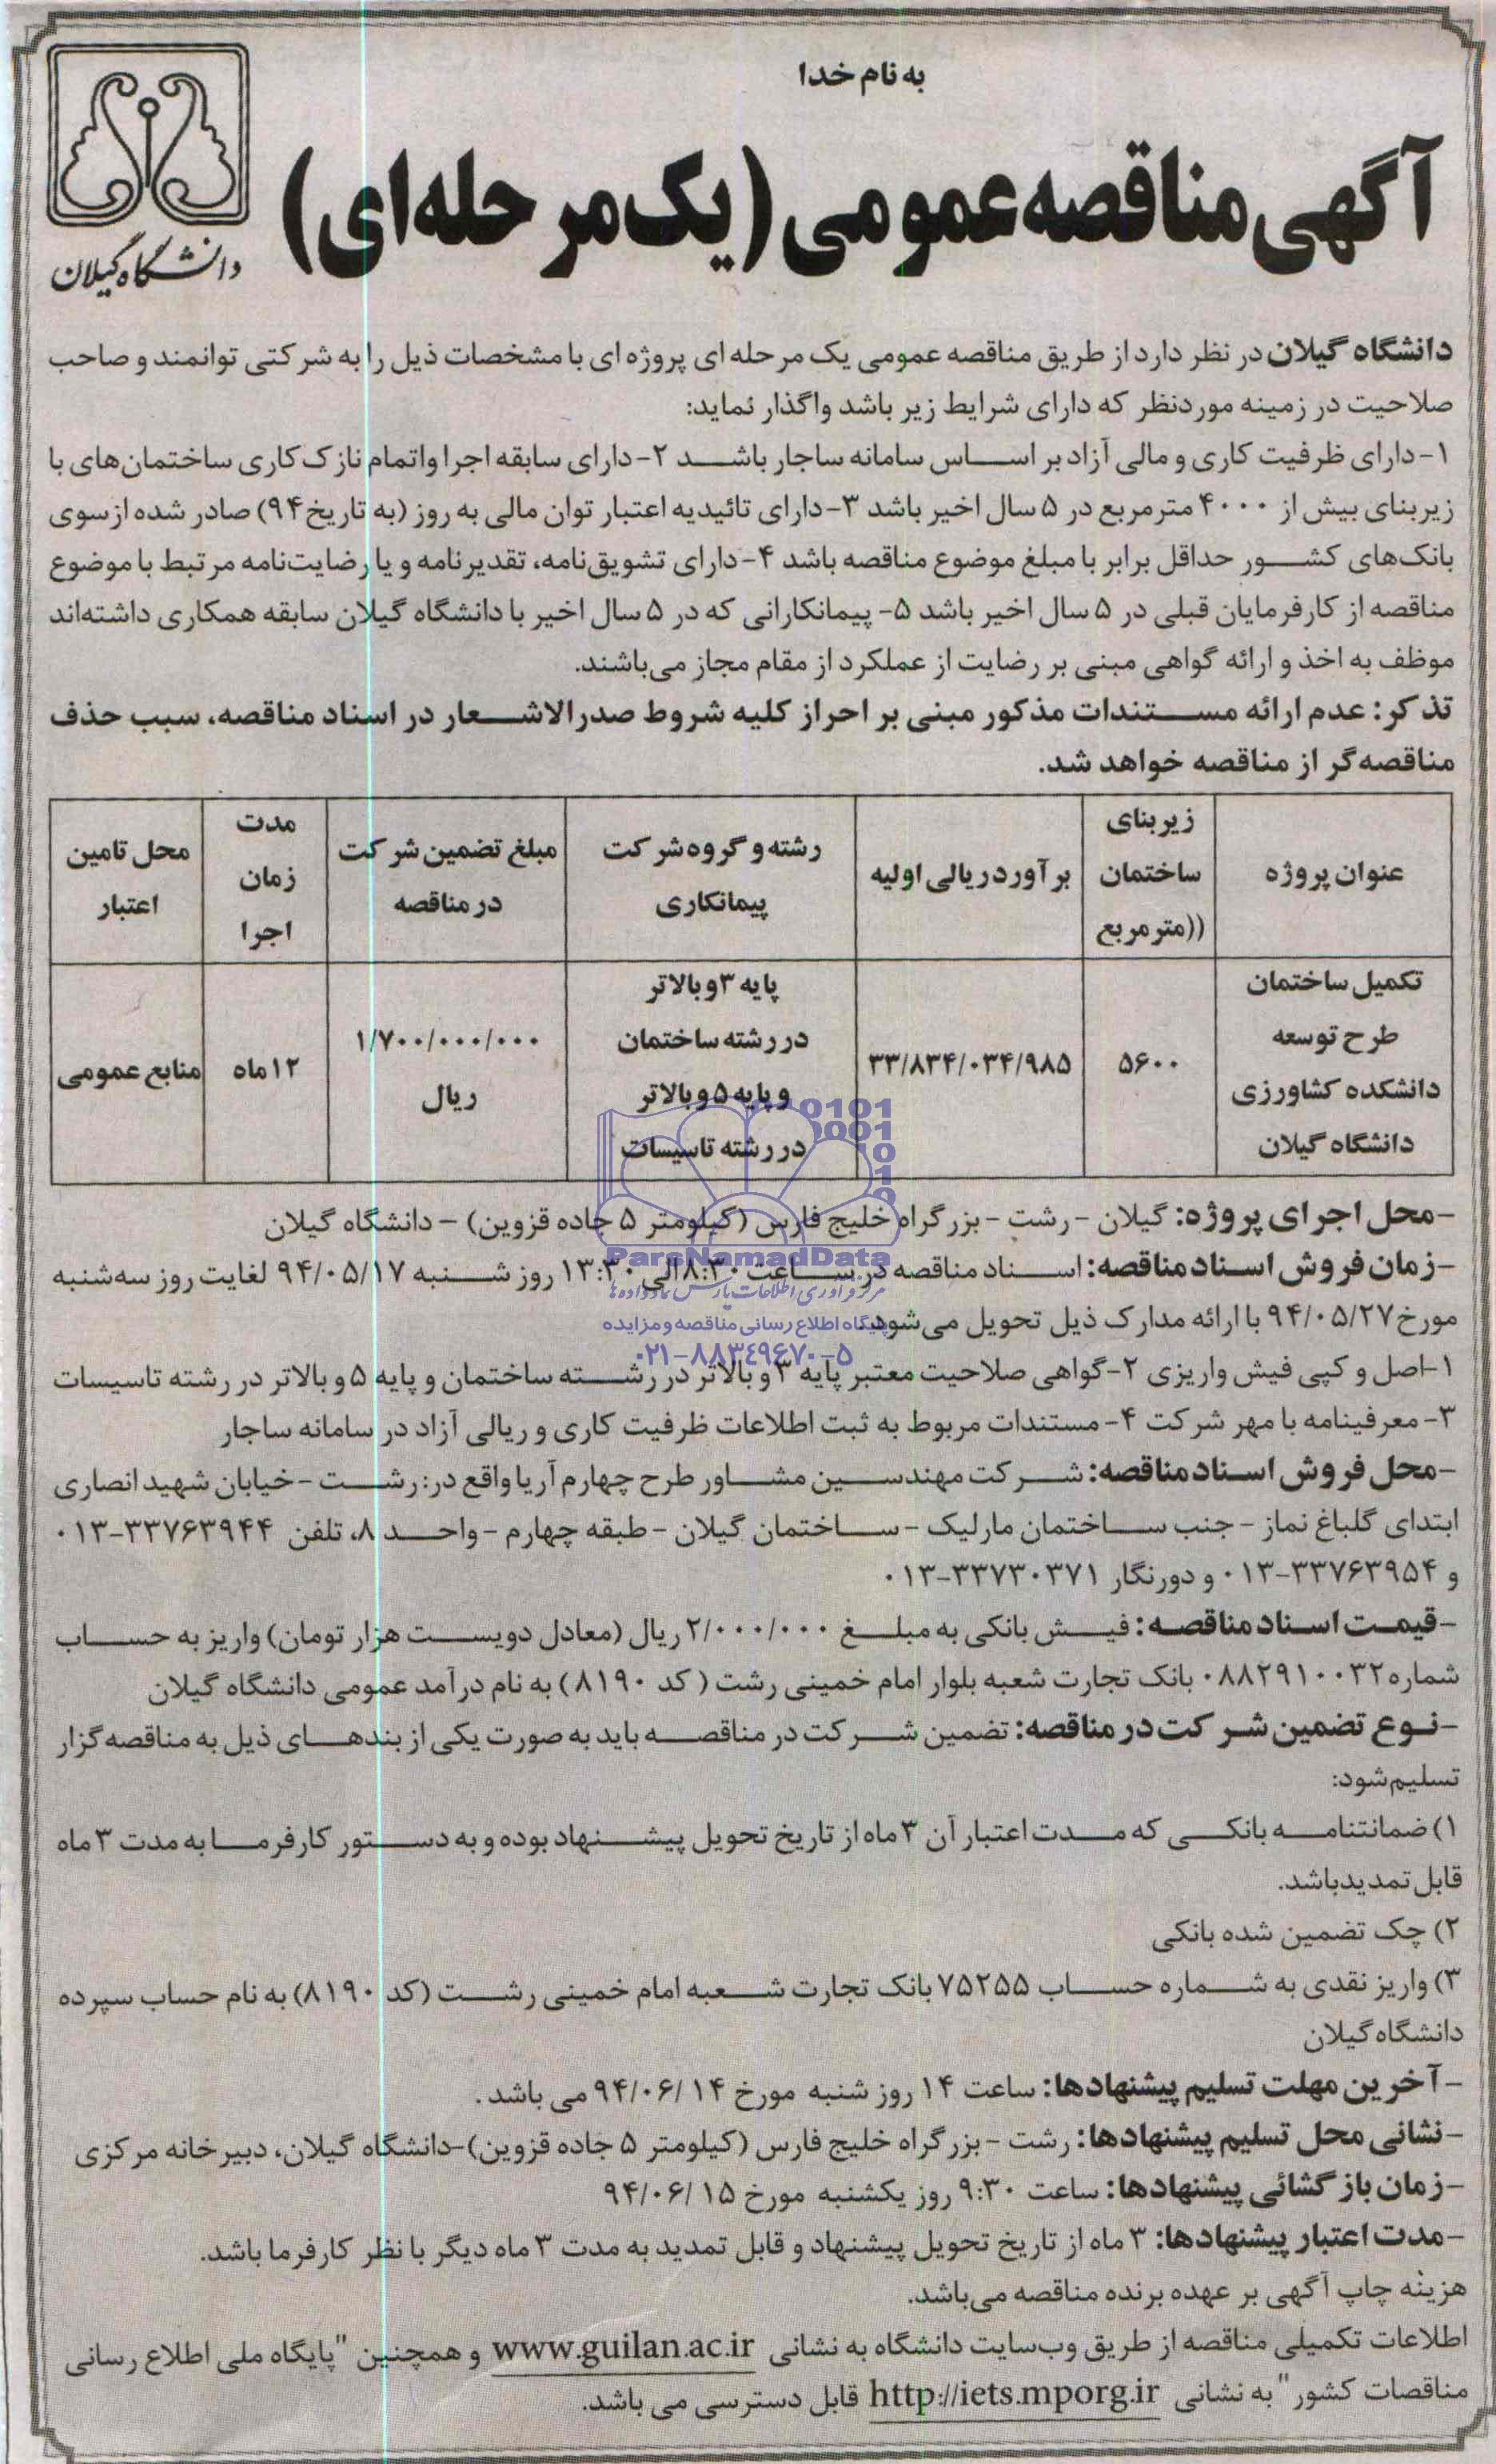 به نام خدا
آگهی مناقصه عمومی (یک مرحله‌ای)
دانشگاه گیلان
دانشگاه گیلان در نظر دارد از طریق مناقصه عمومی یک مرحله ای پروژه ای با مشخصات ذیل را به شرکتی توانمند و صاحب
صلاحیت در زمینه موردنظر که دارای شرایط زیر باشد واگذار نماید:
۱- دارای ظرفیت کاری و مالی آزاد بر اساس سامانه ساجار باشد ۲- دارای سابقه اجرا واتمام نازک کاری ساختمان‌های با
زیربنای بیش از ۴۰۰۰ مترمربع در ۵ سال اخیر باشد ۳- دارای تائیدیه اعتبار توان مالی به روز (به تاریخ ۹۴) صادر شده ازسوی
بانک‌های کشور حداقل برابر با مبلغ موضوع مناقصه باشد ۴- دارای تشویق‌نامه، تقدیرنامه و یا رضایت‌نامه مرتبط با موضوع
مناقصه از کارفرمایان قبلی در ۵ سال اخیر باشد ۵- پیمانکارانی که در ۵ سال اخیر با دانشگاه گیلان سابقه همکاری داشته‌اند
موظف به اخذ و ارائه گواهی مبنی بر رضایت از عملکرد از مقام مجاز می‌باشند.
تذکر: عدم ارائه مستندات مذکور مبنی بر احراز کلیه شروط صدرالاشعار در اسناد مناقصه، سبب حذف
مناقصه‌گر از مناقصه خواهد شد.
عنوان پروژه
زیربنای
ساختمان
((مترمربع
برآورد ریالی اولیه
رشته و گروه شرکت
پیمانکاری
مبلغ تضمین شرکت
در مناقصه
مدت
زمان
اجرا
محل تامین
اعتبار
تکمیل ساختمان
طرح توسعه
دانشکده کشاورزی
دانشگاه گیلان
۵۶۰۰
۳۳/۸۳۴/۰۳۴/۹۸۵
پایه ۳ و بالاتر
در رشته ساختمان
و پایه ۵ و بالاتر
در رشته تاسیسات
۱/۷۰۰/۰۰۰/۰۰۰
ریال
۱۲ ماه
منابع عمومی
-محل اجرای پروژه: گیلان - رشت - بزرگراه خلیج فارس (کیلومتر ۵ جاده قزوین) - دانشگاه گیلان
-زمان فروش اسناد مناقصه: اسناد مناقصه در ساعت ۸:۳۰ الی ۱۳:۳۰ روز شنبه ۹۴/۰۵/۱۷ لغایت روز سه‌شنبه
مورخ ۹۴/۰۵/۲۷ با ارائه مدارک ذیل تحویل می‌شود.
۱-اصل و کپی فیش واریزی ۲-گواهی صلاحیت معتبر پایه ۳ و بالاتر در رشته ساختمان و پایه ۵ و بالاتر در رشته تاسیسات
۳- معرفینامه با مهر شرکت ۴- مستندات مربوط به ثبت اطلاعات ظرفیت کاری و ریالی آزاد در سامانه ساجار
-محل فروش اسناد مناقصه: شرکت مهندسین مشاور طرح چهارم آریا واقع در: رشت - خیابان شهید انصاری
ابتدای گلباغ نماز - جنب ساختمان مارلیک - ساختمان گیلان - طبقه چهارم - واحد ۸، تلفن ۳۳۷۶۳۹۴۴-۰۱۳
و ۳۳۷۶۳۹۵۴-۰۱۳ و دورنگار ۳۳۷۳۰۳۷۱-۰۱۳
-قیمت اسناد مناقصه: فیش بانکی به مبلغ ۲/۰۰۰/۰۰۰ ریال (معادل دویست هزار تومان) واریز به حساب
شماره ۰۸۸۲۹۱۰۰۳۲ بانک تجارت شعبه بلوار امام خمینی رشت (کد ۸۱۹۰) به نام درآمد عمومی دانشگاه گیلان
-نوع تضمین شرکت در مناقصه: تضمین شرکت در مناقصه باید به صورت یکی از بندهای ذیل به مناقصه گزار
تسلیم شود:
۱) ضمانتنامه بانکی که مدت اعتبار آن ۳ ماه از تاریخ تحویل پیشنهاد بوده و به دستور کارفرما به مدت ۳ ماه
قابل تمدید باشد.
۲) چک تضمین شده بانکی
۳) واریز نقدی به شماره حساب ۷۵۲۵۵ بانک تجارت شعبه امام خمینی رشت (کد ۸۱۹۰) به نام حساب سپرده
دانشگاه گیلان
-آخرین مهلت تسلیم پیشنهادها: ساعت ۱۴ روز شنبه مورخ ۹۴/۰۶/۱۴ می باشد.
-نشانی محل تسلیم پیشنهادها: رشت - بزرگراه خلیج فارس (کیلومتر ۵ جاده قزوین)-دانشگاه گیلان، دبیرخانه مرکزی
-زمان بازگشائی پیشنهادها: ساعت ۹:۳۰ روز یکشنبه مورخ ۹۴/۰۶/۱۵
-مدت اعتبار پیشنهادها: ۳ ماه از تاریخ تحویل پیشنهاد و قابل تمدید به مدت ۳ ماه دیگر با نظر کارفرما باشد.
هزینه چاپ آگهی بر عهده برنده مناقصه می‌باشد.
اطلاعات تکمیلی مناقصه از طریق وب‌سایت دانشگاه به نشانی www.guilan.ac.ir و همچنین "پایگاه ملی اطلاع رسانی
مناقصات کشور" به نشانی http://iets.mporg.ir قابل دسترسی می باشد.
ParsNamadData
مرکز فرآوری اطلاعات پارس نماد داده‌ها
پایگاه اطلاع رسانی مناقصه و مزایده
۰۲۱-۸۸۳۴۹۶۷۰-۵